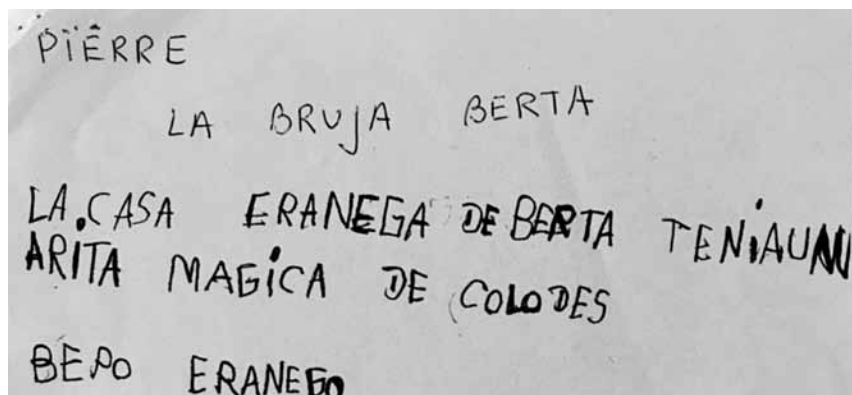 PIERRE
LA BRUJA BERTA
LA.CASA ERANEGA DE BERTA TENIAUN
ARITA MAGICA DE COLODES
BEPO ERANEGO